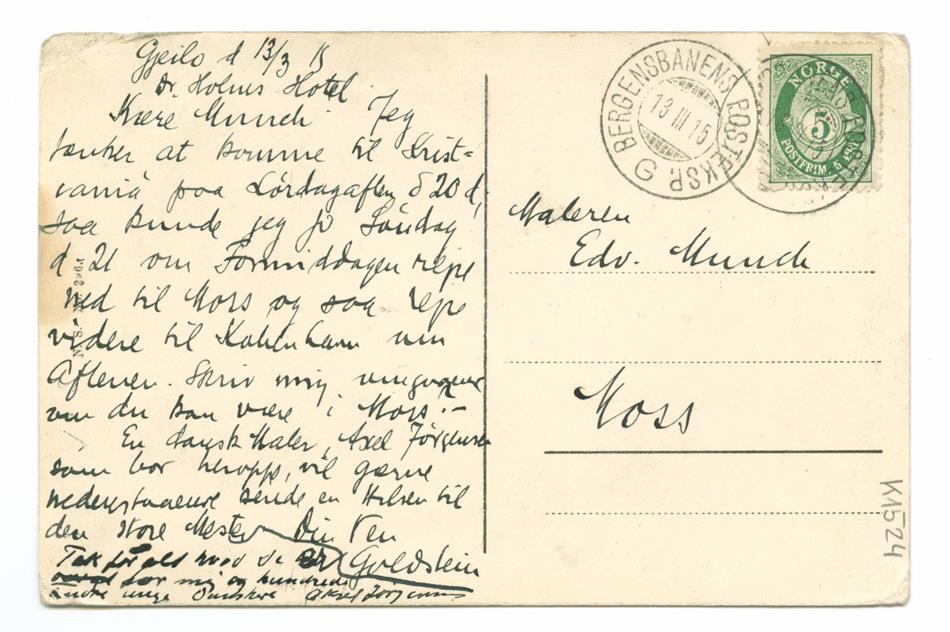 Gjeilo d 13/3 15
Dr. Holms Hotel.
Kære Munch. Jeg
tænker at komme til Krist=
iania paa Lördagaften d 20 d,
saa kunde jeg jo Söndag
d 21 om Formiddagen rejse
ned til Moss og saa rejse
videre til Københavm om
Aftenen. Skriv mig omgaaende
om du kan være i Moss.-
En dansk Maler, Axel Jörgensen
som bor heroppe, vil gærne
nedenstaaende sende en Hilsen til
den store Mester Din Ven
Goldstein
Tak for alt hvad De er
for mig og hundrede
andre unge Danskere Aksel Jörgensen
BERGENSBANENS POSTEKSP. D
13 III 15
NORGE
5
POSTFRIM. 5 ØRE
Maleren
Edv. Munch
Moss
K1524